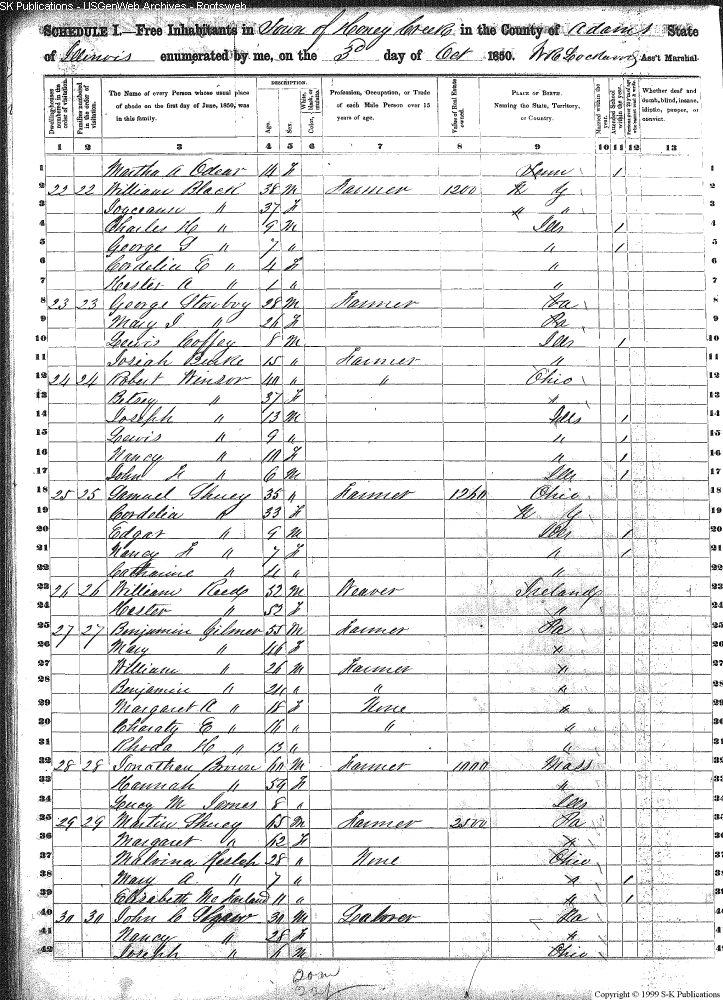 SK Publications - USGenWeb Archives - Rootsweb
SCHEDULE I.—Free Inhabitants in Town of Honey Creek in the County of Adams State
of Illinois enumerated by me, on the 3d day of Oct 1850. Ass't Marshal.
Dwelling-houses numbered in the order of visitation.
Families numbered in the order of visitation.
The Name of every Person whose usual place of abode on the first day of June, 1850, was in this family.
DESCRIPTION.
Age.
Sex.
White, black, or mulatto. Color,
Profession, Occupation, or Trade of each Male Person over 15 years of age.
Value of Real Estate owned.
PLACE OF BIRTH. Naming the State, Territory, or Country.
Married within the year.
Attended School within the year.
Whether deaf and dumb, blind, insane, idiotic, pauper, or convict.
1 2 3 4 5 6 7 8 9 10 11 12 13
1 Martha A Odear 14 F Tenn 1
2 22 22 William Black 38 M Farmer 1200 K Y
3 " 37 F " "
4 Charles H " 9 M Ills 1
5 George T " 7 " " 1
6 Cordelia E " 4 F "
7 Hester A " 1 " "
8 23 23 George 28 M Farmer
9 Mary J " 26 F Pa
10 Lewis Coffey 8 M Ills 1
11 Josiah Burke 15 " Farmer "
12 24 24 Robert Winsor 40 " " Ohio
13 Betsey " 37 F "
14 Joseph " 13 M Ills 1
15 Lewis " 9 " " 1
16 Nancy " 10 F " 1
17 John " 6 M Ills 1
18 25 25 Samuel Shuey 35 " Farmer 1260 Ohio
19 Cordelia " 33 F K Y
20 Edgar " 9 M Ills 1
21 Nancy " 7 F " 1
22 Catharine " 4 " "
23 26 26 William Reeds 52 M Weaver Ireland
24 Hester " 53 F "
25 27 27 Benjamin Gilmer 55 M Farmer Pa
26 Mary " 46 F "
27 William " 26 M Farmer "
28 Benjamin " 24 " " "
29 Margaret A " 18 F None "
30 Charaty E " 16 " " "
31 Rhoda H " 13 " "
32 28 28 Jonathan Brown 60 M Farmer 1000 Mass
33 Hannah " 59 F "
34 Lucy M James 8 " Ills
35 29 29 Martin Shuey 65 M Farmer 2500 Pa
36 Margaret " 62 F "
37 Malvina Heslep 28 " None Ohio
38 Mary A " 7 " " 1
39 Elizabeth McFarland 11 " " 1
40 30 30 John C 30 M Laborer Pa
41 Nancy " 28 F "
42 Joseph " 6 M Ohio
20 m
22 f
Copyright © 1999 S-K Publications